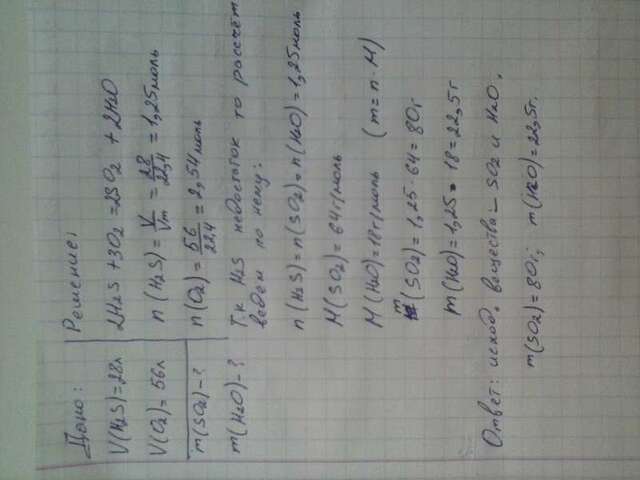 Дано:
V(H₂S)=28л
V(O₂)=56л
m(SO₂)-?
m(H₂O)-?
Решение:
2H₂S+3O₂=2SO₂ + 2H₂O
n(H₂S)=V/Vm=28/22,4=1,25моль
n(O₂)=56/22,4=2,54моль
Т.к H₂S недостаток то рассчёт
ведем по нему:
n(H₂S)=n(SO₂)=n(H₂O)=1,25моль
M(SO₂)=64г/моль
M(H₂O)=18г/моль (m=n·M)
m(SO₂)=1,25·64=80г
m(H₂O)=1,25·18=22,5г
Ответ: исход. вещества - SO₂ и H₂O,
m(SO₂)=80г; m(H₂O)=22,5г.